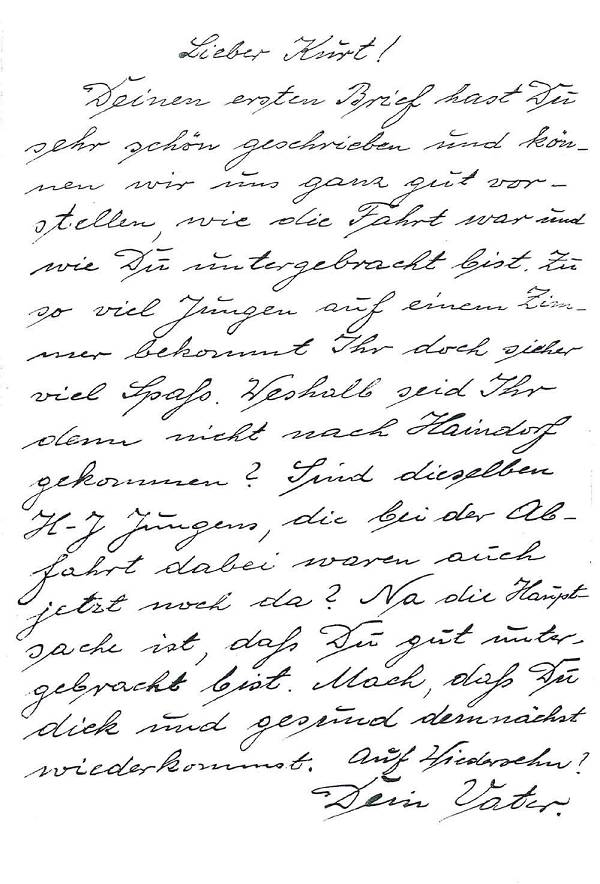 Lieber Kurt!
Deinen ersten Brief hast Du
sehr schön geschrieben und kön-
nen wir uns ganz gut vor-
stellen, wie die Fahrt war und
wie Du untergebracht bist. Zu
so viel Jungen auf einem Zim-
mer bekommt Ihr doch sicher
viel Spaß. Weshalb seid Ihr
denn nicht nach Haindorf
gekommen? Sind dieselben
H-J Jungens, die bei der Ab-
fahrt dabei waren auch
jetzt noch da? Na die Haupt-
sache ist, daß Du gut unter-
gebracht bist. Mach, daß Du
dick und gesund demnächst
wiederkommst. Auf Wiedersehn!
Dein Vater.